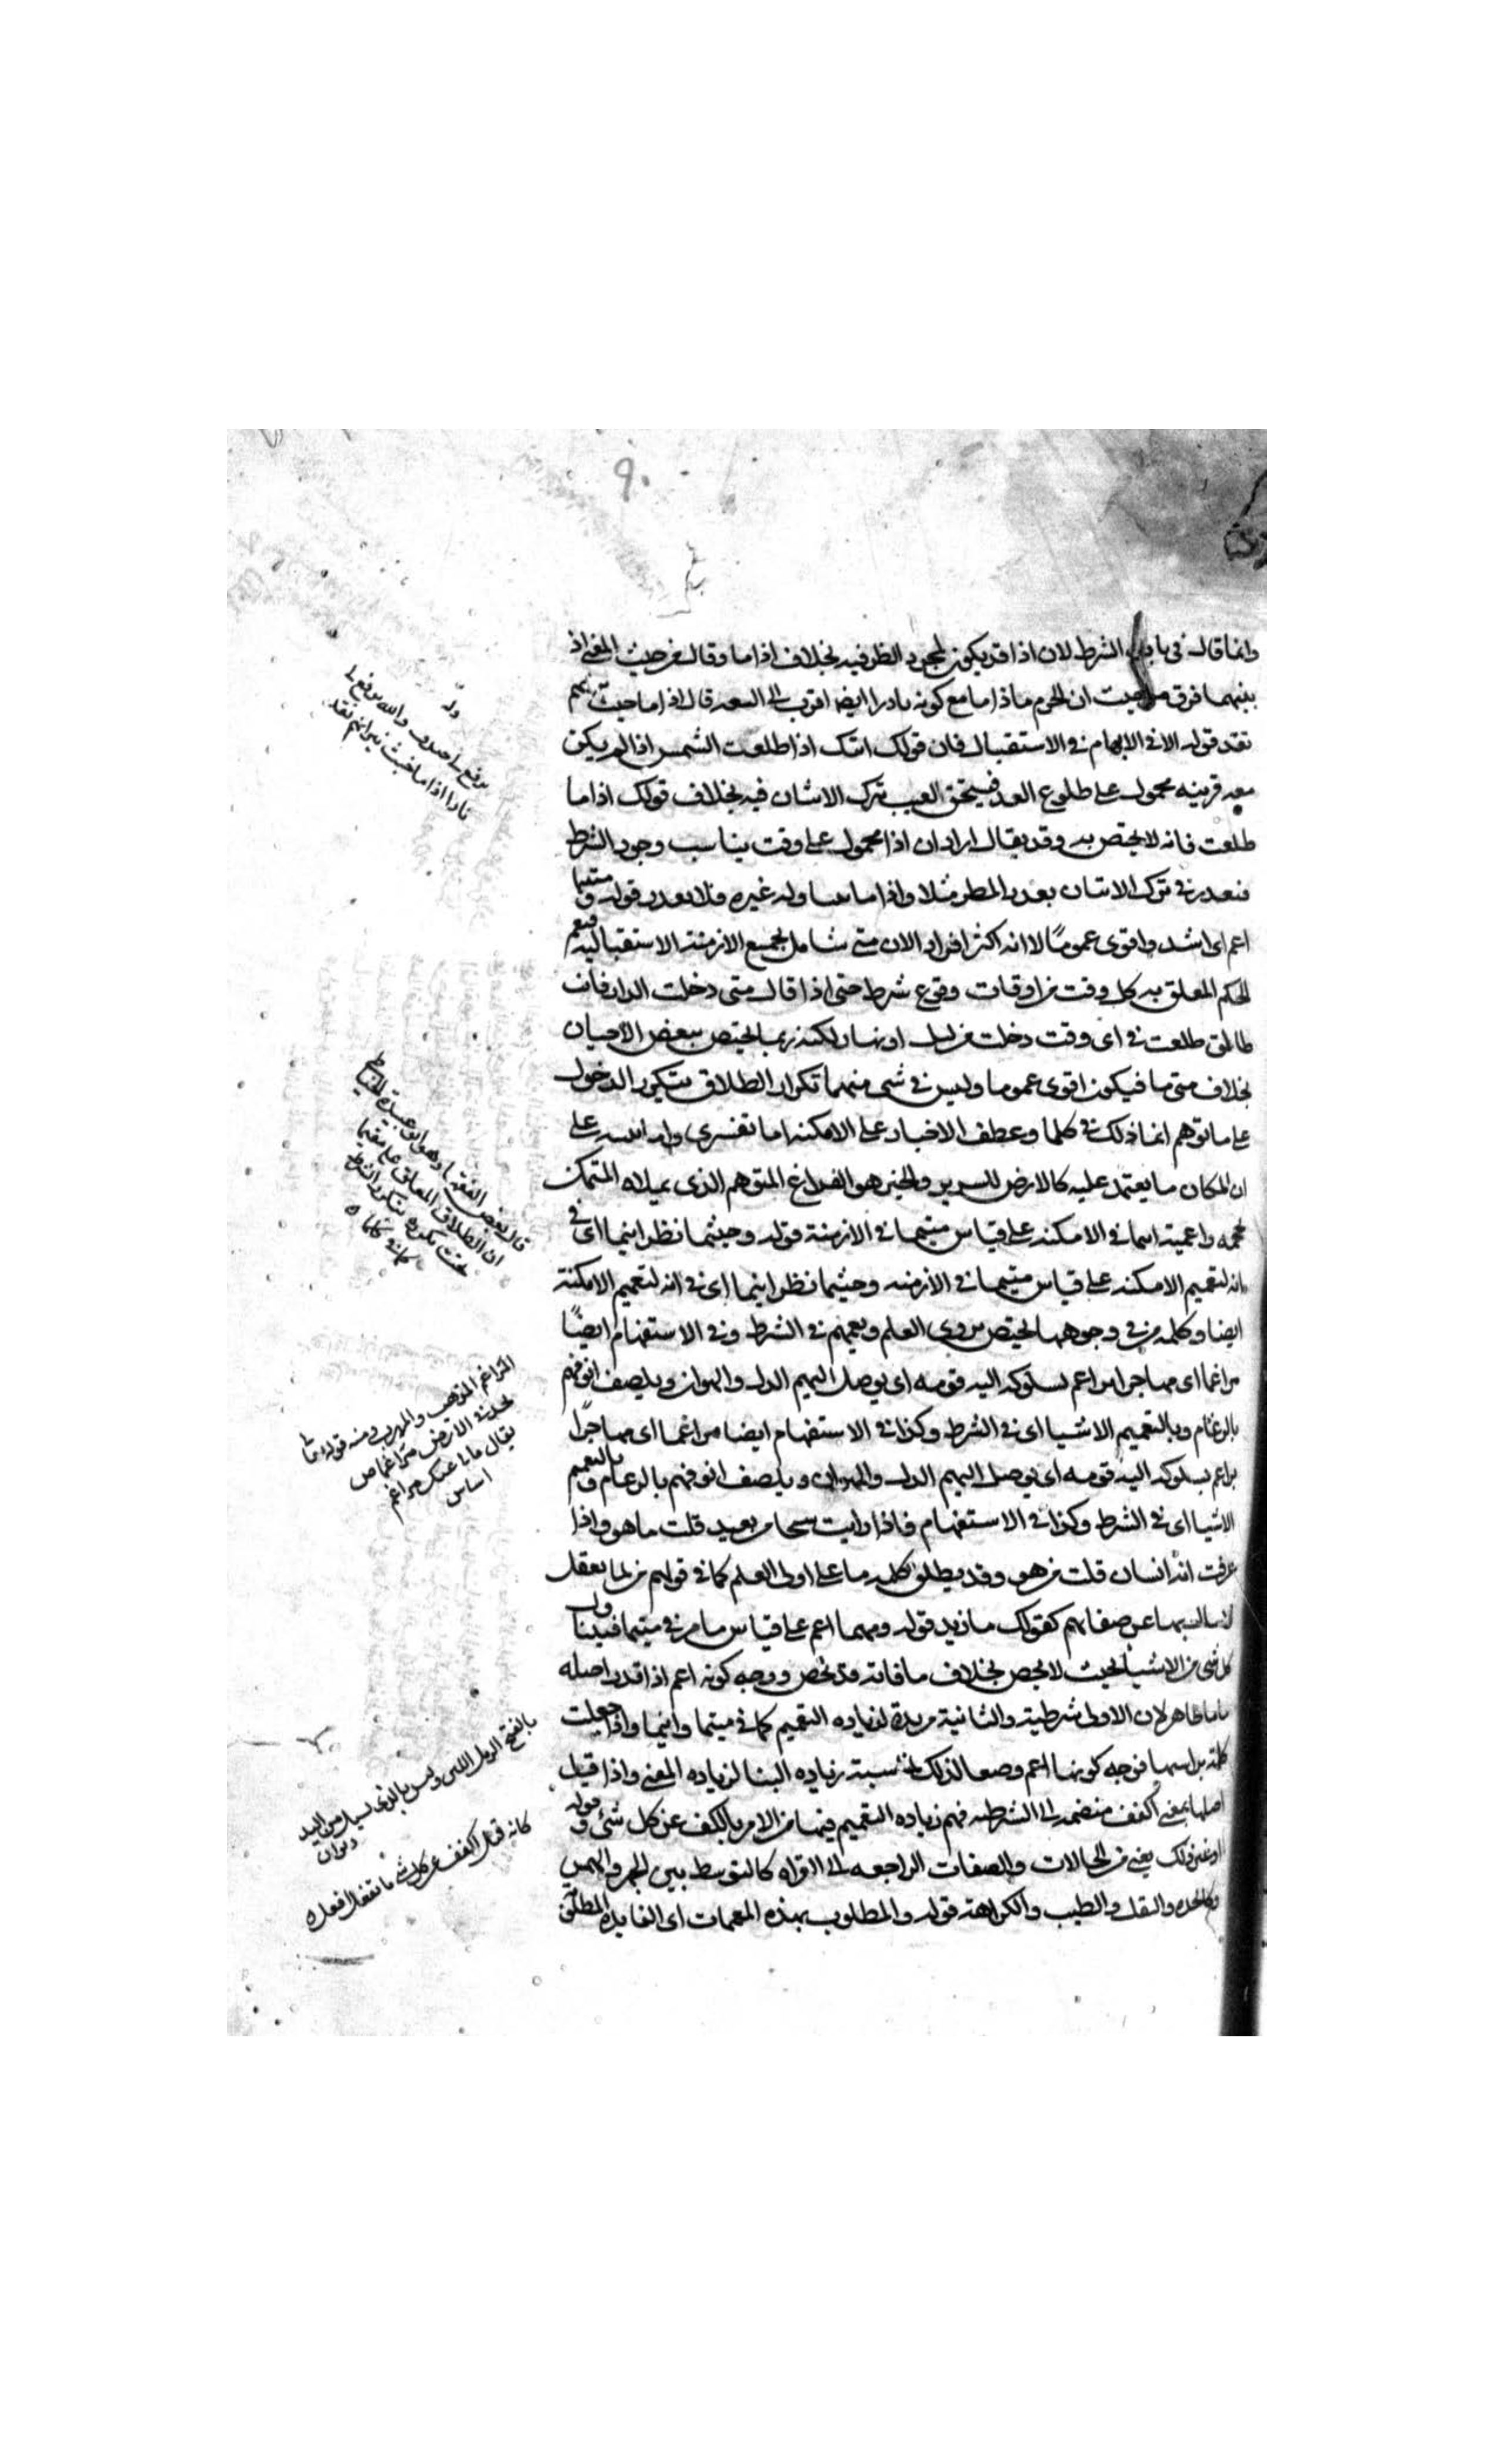 ٩٠
وانما قال في باب الشرط لان اذا قد يكون لمجرد الظرفيه بخلاف اذا ما وقال من حيث المعنى اذ
بينهما فرق من حيث ان الجزم باذا ما مع كونه نادرا ايضا اقرب الى السعه قال اذا ما حيث
قوله الا في الابهام في الاستقبال فان قولك اتيتك اذا طلعت الشمس اذا لم يكن
معه قرينه محمول على طلوع الغد فيستحق العيب بترك الاتيان فيه بخلاف قولك اذا ما
طلعت فانه لا يختص به وقد يقال اراد ان اذا محمول على وقت يناسب وجود الشرط
فيعذر في ترك الاتيان بعذر المطر مثلا واذا ما وله غيره فلا يعذر قوله ومتيما
اعم اى اشد واقوى عموما لا انه اكثر افرادا لان متى شامل لجميع الازمنة الاستقباليه فيعم
الحكم المعلق به كل وقت من اوقات وقوع شرط حتى اذا قال متى دخلت الدار فانت
طالق طلقت في اى وقت دخلت من ليل او نهار لكنه ربما يختص ببعض الاحيان
بخلاف متى ما فيكون اقوى عموما وليس في شى منهما تكرار الطلاق بتكرر الدخول
على ما توهم انما ذلك في كلما وعطف الاحياز على الامكنه اما تفسرى واما على
ان المكان ما يعتمد عليه كالارض للسرير والحيز هو الفراغ المتوهم الذى يملاه المتمكن
بحجمه واعمية اينما في الامكنه على قياس متيما في الازمنة قوله وحيثما نظر اينما اى في
انه لتعميم الامكنه على قياس متيما في الازمنه وحيثما نظر اينما اى في انه لتعميم الامكنة
ايضا وكلمه من في وجوهها لا يختص بذوى العلم ويعمهم في الشرط وفي الاستفهام ايضا
مراغما اى مهاجرا يراغم بسلوكه اليه قومه اى يوصل اليهم الذل والهوان ويلصق انوفهم
بالرغام وبالتعميم الاشيا اى في الشرط وكذا في الاستفهام ايضا مراغما اى مهاجرا
يراغم بسلوكه اليه قومه اى يوصل اليهم الذل والهوان ويلصق انوفهم بالرغام وبالتعميم
الاشيا اى في الشرط وكذا في الاستفهام فاذا رايت شبحا من بعيد قلت ما هو واذا
عرفت انه انسان قلت من هو وقد يطلق كلمه ما على اولى العلم كما في قولهم من لما يعقل
بها عن صفاتهم كقولك ما زيد قوله ومهما اعم على قياس ما مر في متيما
كل شى من الاشيا بحيث لا يخص بخلاف ما فانه قد يخص ووجه كونه اعم اذا قدر اصله
ماما ظاهر لان الاولى شرطية والثانية مزيدة لزياده التعميم كما في متيما واينما واذا جعلت
كلمة براسها فوجه كونها اعم وضعا لذلك زياده البنا لزياده المعنى واذا قيل
اصلها بمعنى اكفف منضمه الى الشرطيه فهم زياده التعميم فيها من الامر بالكف عن كل شى قوله
او غير ذلك يعنى من الحالات والصفات الراجعه الى القراه كالتوسط بين الجهر والهمس
والثقل والطيب والكراهة قوله والمطلوب بهذه المعممات اى الفايده
يرفع لى خندف والله يرفع لى
نارا اذا ما خبت نيرانهم تقد
قال بعض الفقها
ان الطلاق المعلق على متيما
يتكرر بتكرر الشرط
كما في كلما
المراغم المذهب والمهرب ومنه قوله تعالى
يجد في الارض مراغما
يقال مالى عنك مراغم
اساس
بالفتح الرمل اللين وليس بالذى يسيل من اليد
ديوان
كانه قيل اكفف عن كل شى ما تفعل افعله